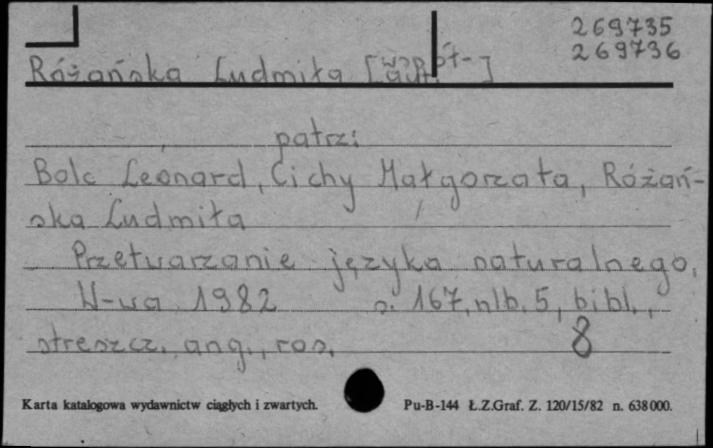 269735
269736
Różańska Ludmiła [współ-]
aut.
patrz:
Bolc Leonard, Cichy Małgorzata, Różań-
ska Ludmiła
Przetwarzanie języka naturalnego,
W-wa 1982 s. 167, nlb. 5, bibl.,
streszcz. ang., ros.
8
Karta katalogowa wydawnictw ciągłych i zwartych. Pu-B-144 Ł.Z.Graf. Z. 120/15/82 n. 638000.